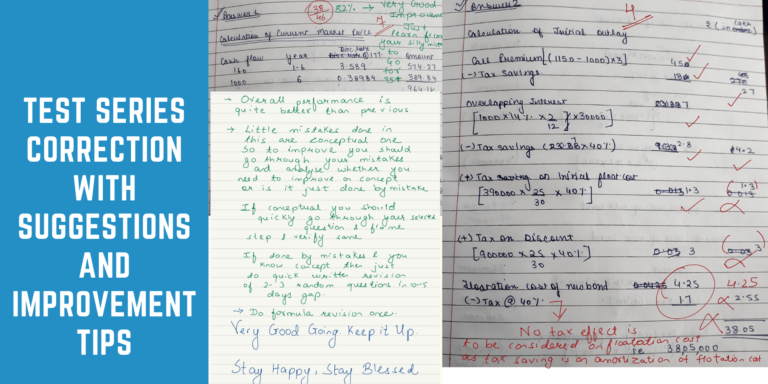 TEST SERIES
CORRECTION
WITH
SUGGESTIONS
AND
IMPROVEMENT
TIPS
38
46
82% → Very Good
Improveme
7 Just
learn from
your silly mist
Calculation of Current Market Price
Cash flow year Amount
160 1-6 3.589 574.27
1000 6 0.38984 389.84
964.11
→ Overall performance is
quite better than previous
→ Little mistakes done in
this are conceptual one
So to improve you should
go through your mistakes
and analyse whether you
need to improve on concept
or is it just done by mistake
If conceptual you should
quickly go through your selected
question & frame
step & verify same
If done by mistake & you
know concept then just
do quick written revision
of 2-3 random questions in
days gap.
→ Do formula revision once.
Very Good Going. Keep it Up.
Stay Happy, Stay Blessed
Answer 2
4
Calculation of Initial outlay
Call Premium [(1150-1000)×3] 450
(-) Tax Savings 180 270
27
Overlapping Interest
[1000 × 14% × 2/12 × 30000]
(-) Tax savings ( × 40%) 2.8 4.2
(+) Tax saving on Initial float cost
[390000 × 25/30 × 40%] 1.3
(+) Tax on Discount
[900000 × 25/30 × 40%] 3
Floatation cost of new bond 4.25 4.25
(-) Tax @ 40% 1.7 2.55
38.05
No tax effect is
to be considered on floatation cost
3805,000
as tax saving is on amortization of flotation cost